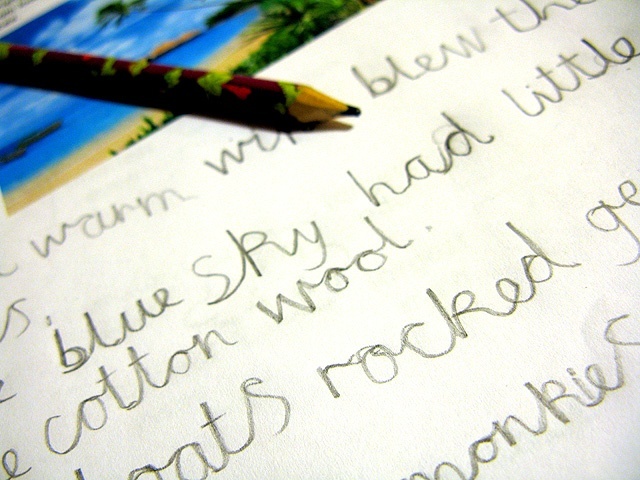 warm wi blew the
blue sky had little
cotton wool.
boats rocked ge
monkies